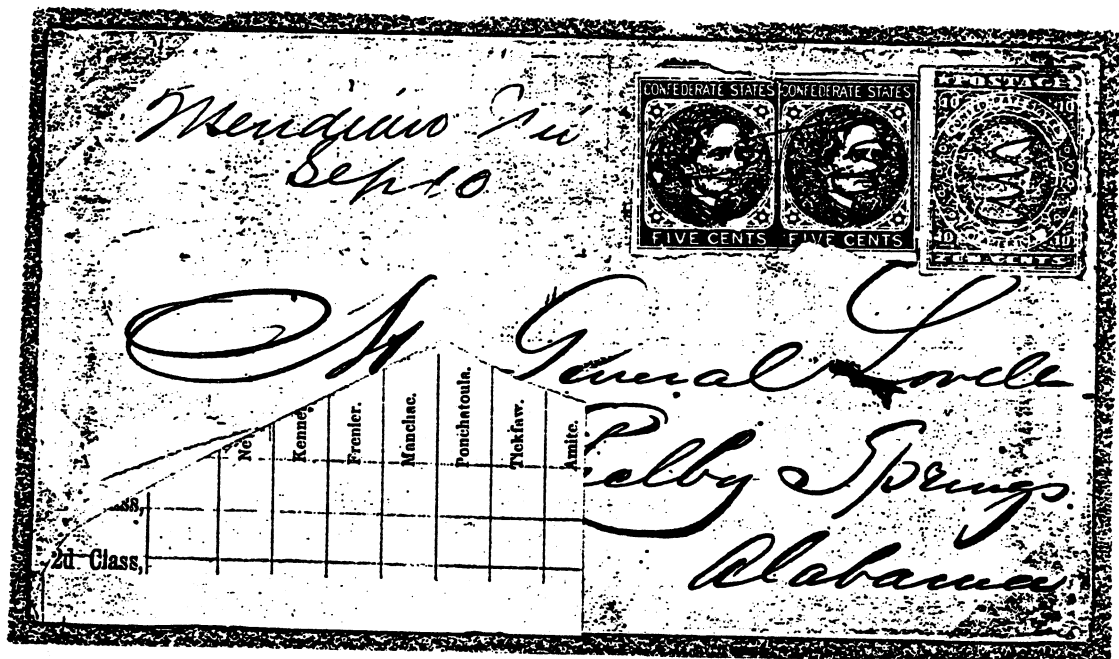 Meridian Mi
Sep 10
CONFEDERATE STATES
FIVE CENTS
CONFEDERATE STATES
FIVE CENTS
POSTAGE
10 10
10 10
TEN CENTS
General Lovell
Shelby Springs
Alabama
Kenner.
Frenier.
Manchac.
Ponchatoula.
Tickfaw.
Amite.
2d Class,